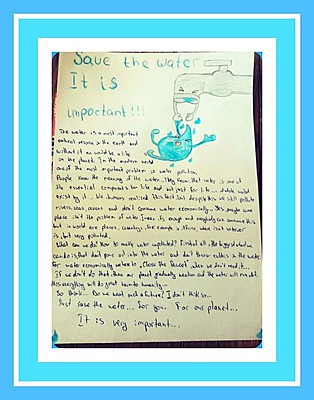 Save the water
It is
important!!!
The water is a most important
natural resource the earth and
without it no would be a life
on the planet. In the modern world
one of the most important problem is water pollution.
People know the meaning of the water... They know that water is one of
the essential components for life and not just for life...
exist by it... We humans realized this best but despite this we still pollute
rivers, seas, oceans and don't consume water economically. It's maybe some
place isn't the problem of water, is enough and everybody can consume this
but in world are places, countrys, for example is Africa, where isn't water or
is, but very polluted.
What can we do? How to make water unpolluted? First of all, the biggest what we
can do is, that don't pour oil into the water and don't throw rubbish in the water.
for water economically we have to „close the faucet" when we don't need it...
If we don't do that, then our planet gradually weaken and the water will run out
this everything will do great harm to humanity...
So think... Do we want such a future? I don't think so...
Just save the water... For you. For our planet...
It is very important...